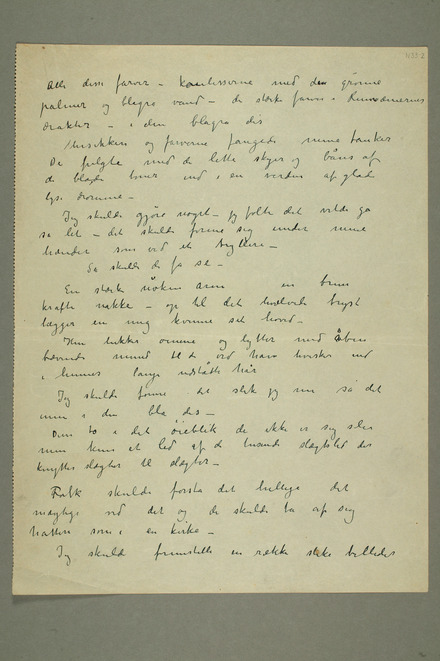 Alle disse farver – koulisserne med den grønne
palmer og blågra vand – de stærke farver i Rumænernes
drakter – i den blågra dis
Musikken og farverne fangede mine tanker
De fulgte med de lette skyer og båres af
de bløde toner ind i en verden af glad
lyse drømme –
Jeg skulde gjøre noget – jeg følte det vilde ga
sa let – det skulde forme sig under mine
hænder som ved et trylleri –
Sa skulde de fa se –
En stærk nøken arm en brun
kraftig nakke – op til det hvælvede bryst
lægger en ung kvinne sit hoved –
Hun lukker øinene og lytter med åben
bævende mund til de ord han hvisker ind
i hennes lange udslåtte hår
Jeg skulde forme det slik jeg nu så det
men i den bla dis –
Disse to i det øieblik de ikke er sig selv
men kun et led af de tusende slægtsled der
knytter slægter til slægter –
Folk skulde forsta det hellige det
mægtige ved det og de skulde ta af sig
hatten som i en kirke –
Jeg skulde fremstille en række slike billeder